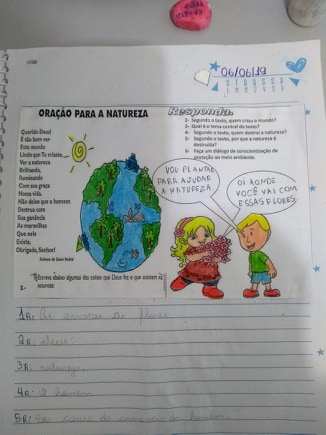 ORAÇÃO PARA A NATUREZA
Querido Deus!
É tão bom ver
Este mundo
Lindo que Tu criaste.
Ver a natureza
Brilhando,
Iluminando
Com sua graça
Nossa vida.
Não deixe que o homem
Destrua com
Sua ganância
As maravilhas
Que nela
Existe.
Obrigado, Senhor!
Responda.
2- Segundo o texto, quem criou o mundo?
3- Qual é o tema central do texto?
4- Segundo o texto, quem destrói a natureza?
5- Segundo o texto, por que a natureza é
destruída?
6- Faça um diálogo de conscientização de
proteção ao meio ambiente.
VOU PLANTAR
PARA AJUDAR
A NATUREZA
OI AONDE
VOCÊ VAI COM
ESSAS FLORES
abaixo algumas das coisas que Deus fez e que existem na
natureza
1R: as flores
2R: Deus!
3R: natureza.
4R: O homem
5R: causa da ganância do homem